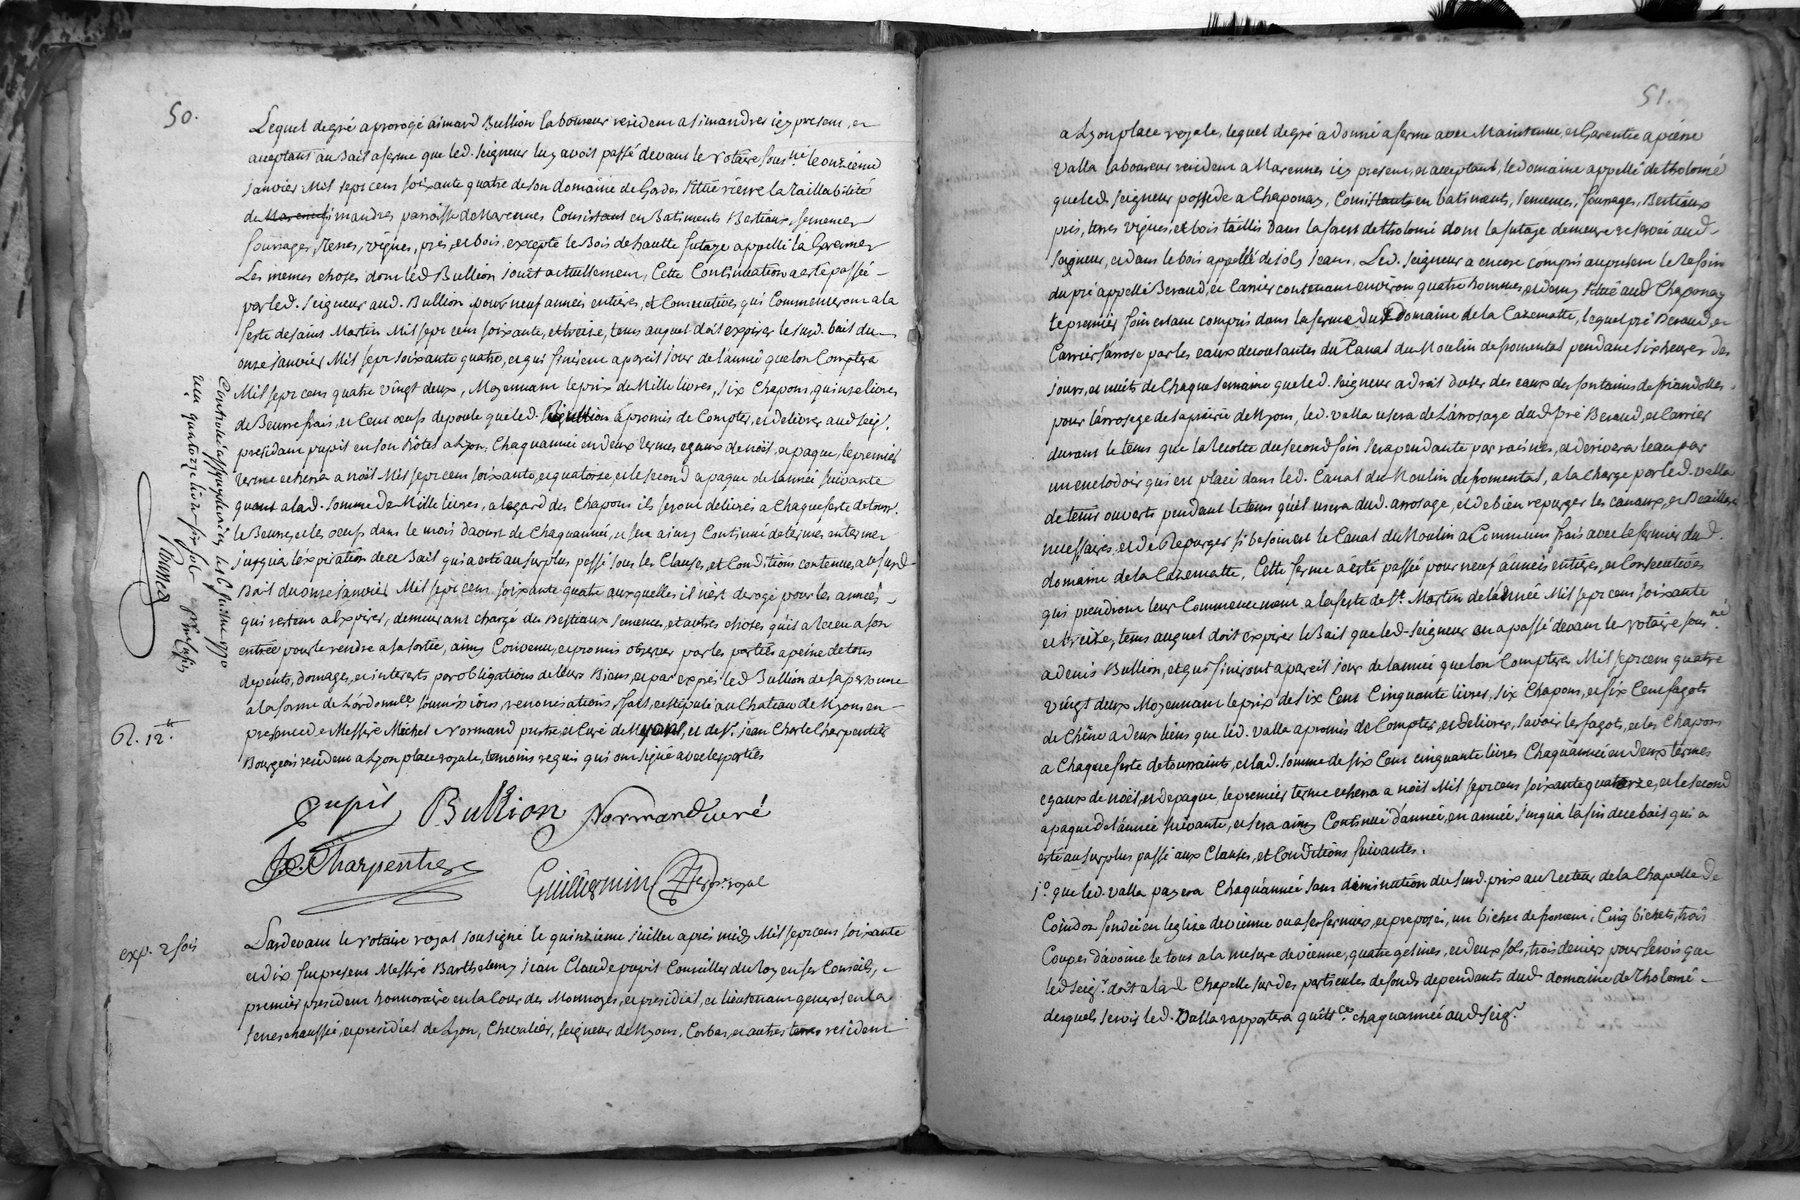 50.
Lequel de gré a prorogé aimard Bullion laboureur resident a simandres icy present, et
acceptant au Bail a ferme que led. seigneur luy avoit passé devant le notaire sous.né le onzieme
janvier Mil sept cens soixante quatre de son domaine de Gordes sittué riere la Taillabilité
de Marennes simandres paroisse de Marennes Consistant en Batiments Bestiaux, semences
fourrages, Terres, vignes, prés, et bois, excepté le Bois de hautte futaye appellé la Garenne
Les memes choses dont led Bullion jouit actuellement, Cette Continuation a esté passée
par led. seigneur aud. Bullion pour neuf années entieres, et Consecutives qui Commenceront a la
feste de saint Martin Mil sept cens soixante, et treize, tems auquel doit expirer le susd. bail du
onze janvier Mil sept soixante quatre, et qui finiront a pareil jour de l'année que lon Comptera
Mil sept cens quatre vingt deux, Moyennant le prix de Mille livres, six Chapons, quinze livres
de Beurre frais, et Cent oeufs de poule que led. Bullion a promis de Compter, et delivrer aud seig.
president pupil en son hôtel a Lyon, Chaque année en deux termes egaux de noël, et paque, le premier
terme echerra a noël Mil sept cens soixante, et quatorze, et le second a paque de lannée suivante
quant a lad. somme de Mille livres, a legard des Chapons ils seront delivrés a Chaque feste de touss.
le Beurre, et les oeufs dans le mois d'aoust de Chaque année, et sera ainsy Continué de termes en termes
jusqu'a l'expiration de ce Bail qui a esté au surplus passé sous les Clauses, et Conditions contenues au susd
Bail du onze janvier Mil sept cens soixante quatre auxquelles il n'est derogé pour les années
qui restent a Expirer, demeurant chargé des Bestiaux semences, et autres choses qu'il a receu a son
entrée pour le rendre a la sortie, ainsy Convenu, et promis observer par les parties a peine de tous
depents, domages, et interets par obligations de leurs Biens, et par exprès led Bullion de sa personne
a la forme de Lordonn.ce soumissions, renonciations ffait, et stipulé au Chateau de Myons en
presence de Messire Michel Normand prestre, et Curé de Myons, et de s.r jean Charle Charpentier
Bourgeois resident a Lyon place royale, temoins requis qui ont signé avec les parties
pupil Bullion Normand curé
J. C. Charpentier
Guillermin no.re royal
Controllé a st simphorien le 26 juillet 1770
reçu quatorze livres six sols
R. 12.tt
exp. 2 fois
Pardevant le notaire royal sousigné le quinzieme juillet après midy Mil sept cens soixante
et dix fut present Messire Barthelemy jean Claude pupil Conseiller du Roy en ses Conseils,
premier president honnoraire en la Cour des Monnoyes, et presidial, et lieutenant general en la
senechaussée, et presidial de Lyon, Chevalier, seigneur de Myons, Corbas, et autres terres resident
51.
a Lyon place royale, lequel de gré a donné a ferme avec Maintenue, et Garentie a pierre
Valla laboureur resident a Marennes icy present, et acceptant, le domaine appellé de tholomé
que led. seigneur possede a Chaponay, Consistant en batiments, semences, fourrages, Bestiaux
prés, terres vignes, et bois taillis dans la forest de tholomé dont la futaye demeure reservée aud
seigneur, et dans le bois appellé de sols jean, Led. seigneur a encore compris au present le 2e foin
du pré appellé Beraud, et Carrier contenant environ quatre hommes, et demy sittué aud Chaponay
le premier foin estant compris dans la ferme du domaine de la Cazematte, lequel pré Beraud, et
Carrier s'arrose par les eaux decoulantes du Canal du Moulin de fromentas pendant six heures des
jours, et nuits de Chaque semaine que led. seigneur a droit d'user des eaux des fontaines de friandolles
pour l'arrosage de sa prairie de Myons, led. valla usera de L'arrosage dud pré Beraud, et Carrier
durant le tems que la recolte du second foin sera pendante par racines, et derivera l'eau par
un enclodoir qui en placé dans led. Canal du Moulin de fromentas, a la charge par led. valla
de tenir ouverts pendant le tems qu'il usera dud. arrosage, et de bien repurger les canaux, et Beallieres
necessaires, et de Repurger si besoin est le Canal du Moulin a Communs frais avec le fermier dud.
domaine de la Cazematte, Cette ferme a esté passée pour neuf années entieres, et Consecutives
qui prendront leur Commencement a la feste de s.t Martin de l'année Mil sept cens soixante
et treize, tems auquel doit expirer le Bail que led-seigneur en a passé devant le notaire sous.né
a denis Bullion, et qui finiront a pareil jour de lannée que lon Comptera Mil sept cens quatre
vingt deux Moyennant le prix de six Cent Cinquante livres, six Chapons, et six Cent fagots
de Chêne a deux liens que led. valla a promis de Compter, et delivrer, savoir les fagots, et les Chapons
a Chaque feste de toussaints, et lad. somme de six Cent cinquante livres Chaque année en deux termes
egaux de noël, et de paque, le premier terme echerra a noël Mil sept cens soixante quatorze, et le second
a paque de l'année suivante, et sera ainsy Continué d'année, en année jusqu'a la fin de ce bail qui a
esté au surplus passé aux Clauses, et Conditions suivantes.
1.o que led. valla payera Chaque année sans diminution du susd. prix au Recteur de la Chapelle de
Coindoz fondée en leglise de vienne ou a ses fermiers, et preposés, un bichet de froment, Cinq bichets, trois
Coupes d'avoine le tout a la mesure de vienne, quatre gelines, et deux sols, trois deniers pour servis que
led seig.r doit a lad Chapelle sur des particules de fonds dependant dud domaine de Tholomé
desquels servis led. Valla rapportera quitt.ce chaque année aud seig.r